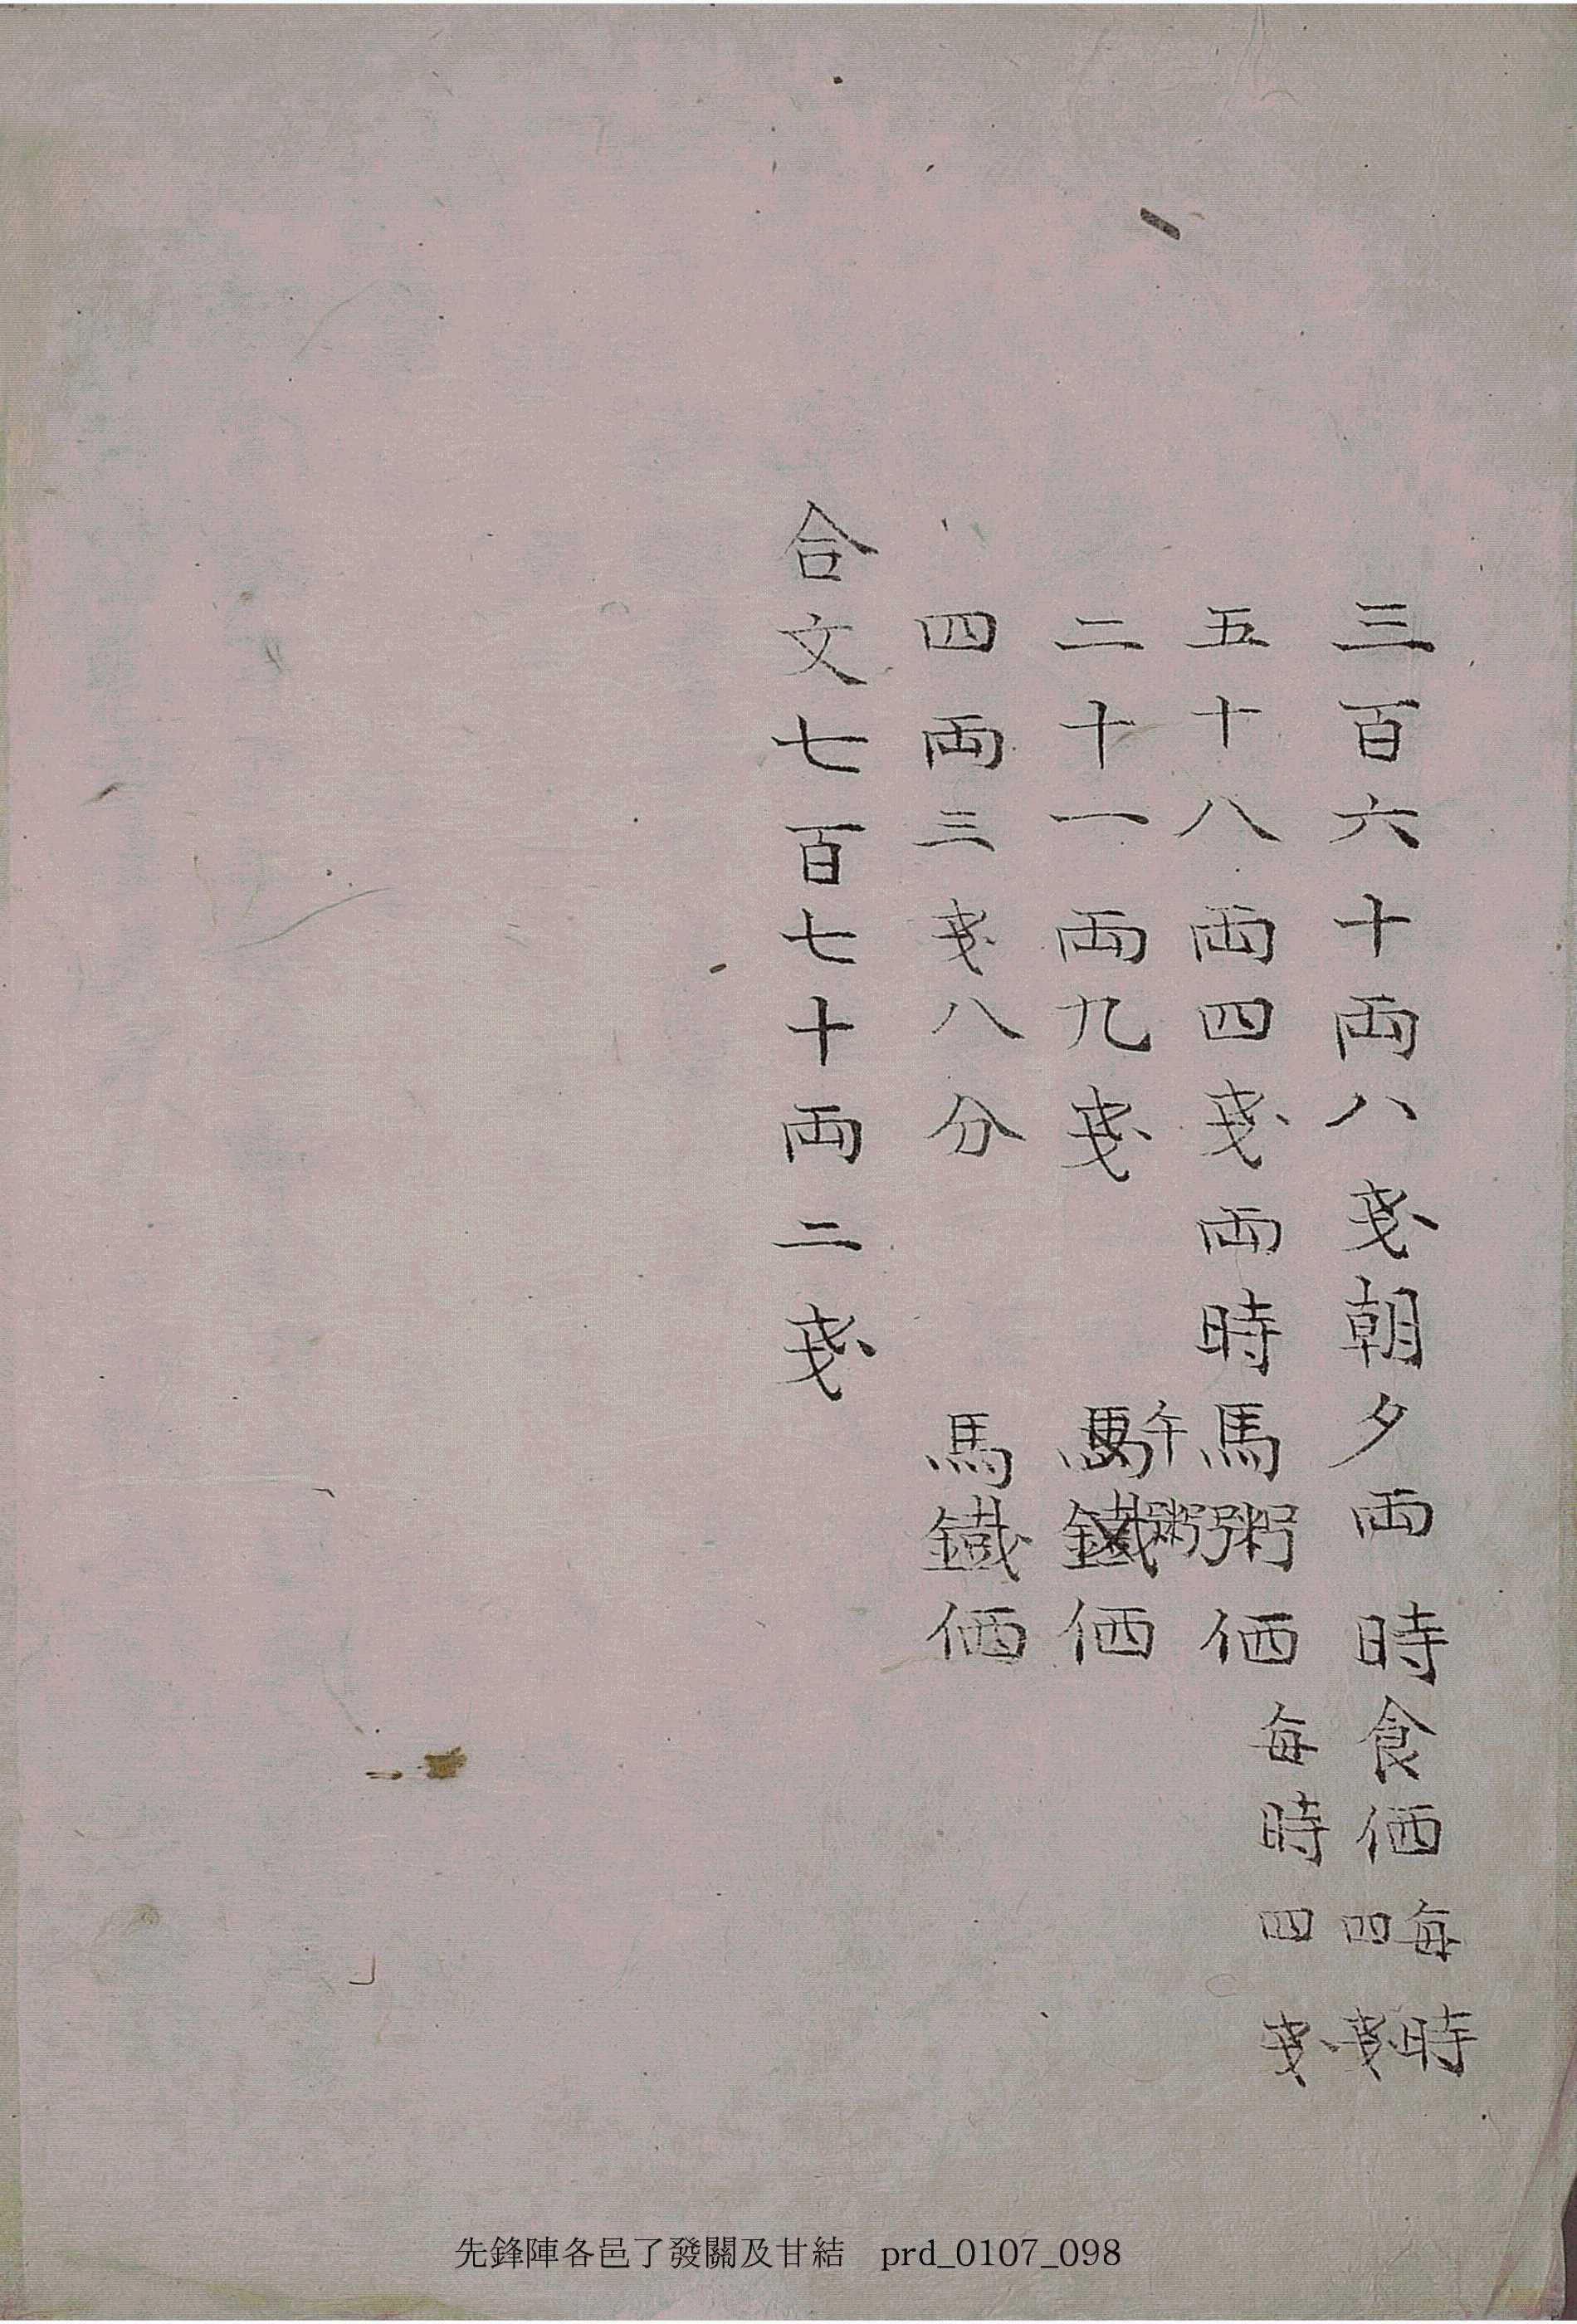 三百六十両八戔朝夕両時食価每時四戔
五十八両四戔両時馬粥価每時四戔
二十一両九戔 午粥価
四両三戔八分 馬鐵価
合文七百七十両二戔
先鋒陣各邑了發關及甘結 prd_0107_098